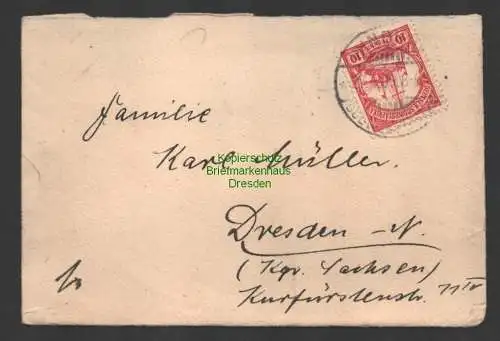 10 10
Familie
Karl Müller.
Kopierschutz
Briefmarkenhaus
Dresden
Dresden - N.
(Kgr. Sachsen)
Kurfürstenstr.